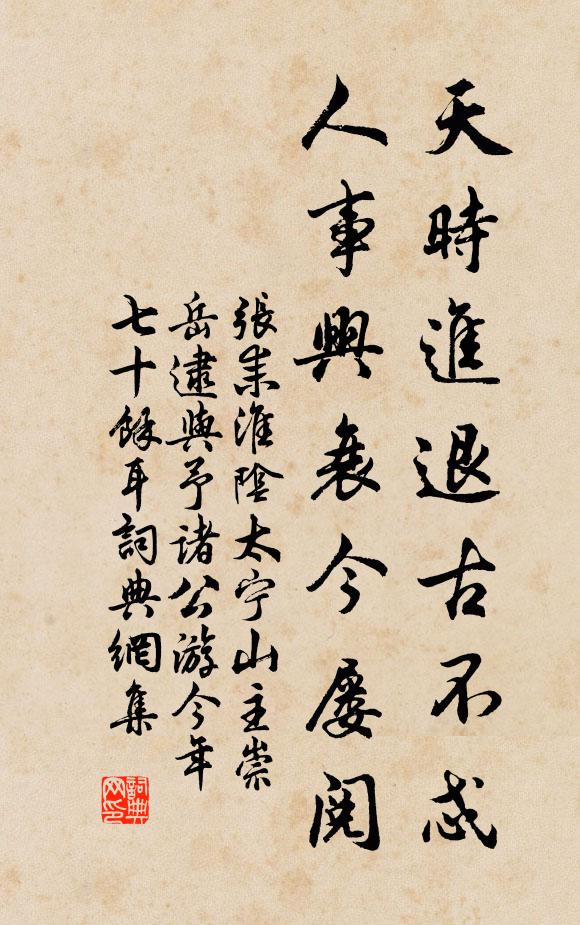 天時進退古不忒
人事興衰今屢閱
張耒淮陰太宁山主崇
岳逮與予諸公游今年
七十餘耳詞典網集
詞典网印